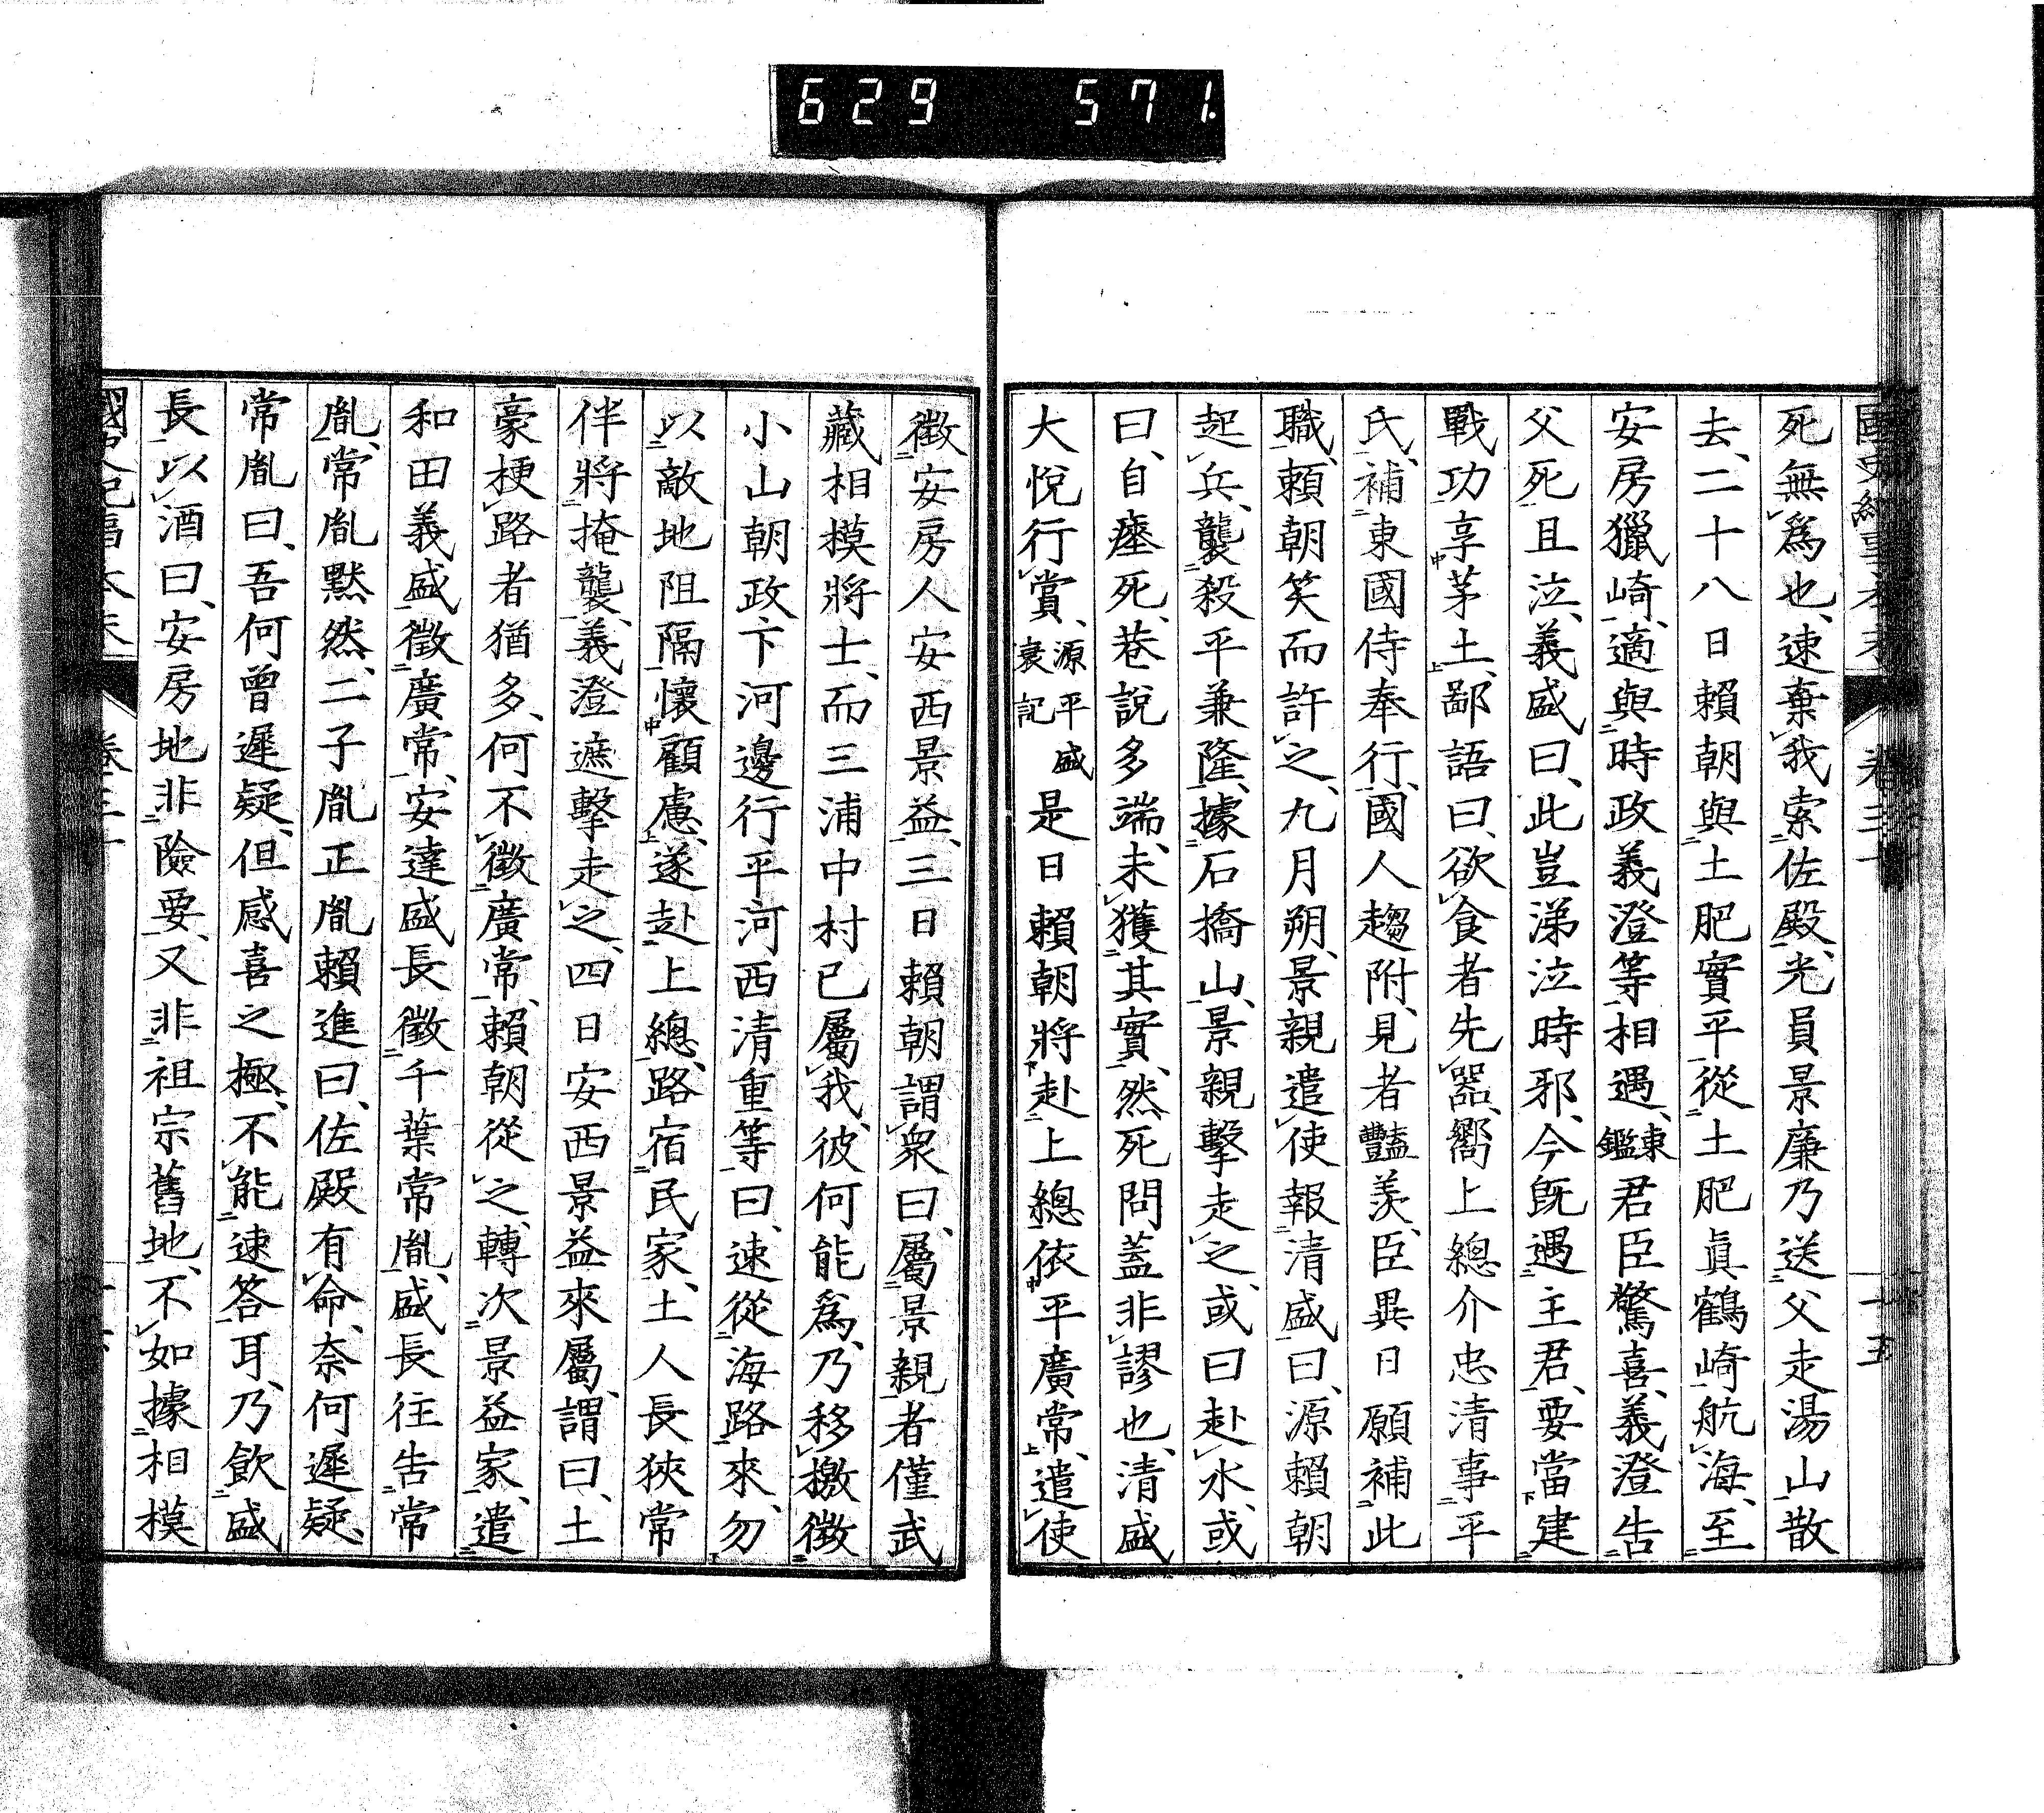 629 571.
死無爲也、速棄我索佐殿、光員景廉乃送父走湯山散
去、二十八日賴朝與土肥實平從土肥眞鶴崎航海、至
安房獵崎、適與時政義澄等相遇、東鑑君臣驚喜、義澄告
父死且泣、義盛曰、此豈涕泣時邪、今既遇主君、要當建
戰功享茅土、鄙語曰、欲食者先器、嚮上總介忠清事平
氏、補東國侍奉行、國人趨附、見者豔羡、臣異日願補此
職、賴朝笑而許之、九月朔、景親遣使報清盛曰、源賴朝
起兵、襲殺平兼隆、據石橋山、景親擊走之、或曰赴水、或
曰、自瘞死、巷說多端、未獲其實、然死問蓋非謬也、清盛
大悅行賞、源平盛衰記是日賴朝將赴上總依平廣常、遣使
徵安房人安西景益、三日賴朝謂衆曰、屬景親者僅武
藏相模將士、而三浦中村已屬我、彼何能爲、乃移檄徵
小山朝政下河邊行平河西清重等曰、速從海路來、勿
以敵地阻隔懷顧慮、遂赴上總、路宿民家、土人長狹常
伴將掩襲、義澄遮擊走之、四日安西景益來屬、謂曰、土
豪梗路者猶多、何不徵廣常、賴朝從之、轉次景益家、遣
和田義盛徵廣常、安達盛長徵千葉常胤、盛長往告常
胤、常胤默然、二子胤正胤賴進曰、佐殿有命、奈何遲疑、
常胤曰、吾何曾遲疑、但感喜之極、不能速答耳、乃飲盛
長以酒曰、安房地非險要、又非祖宗舊地、不如據相模